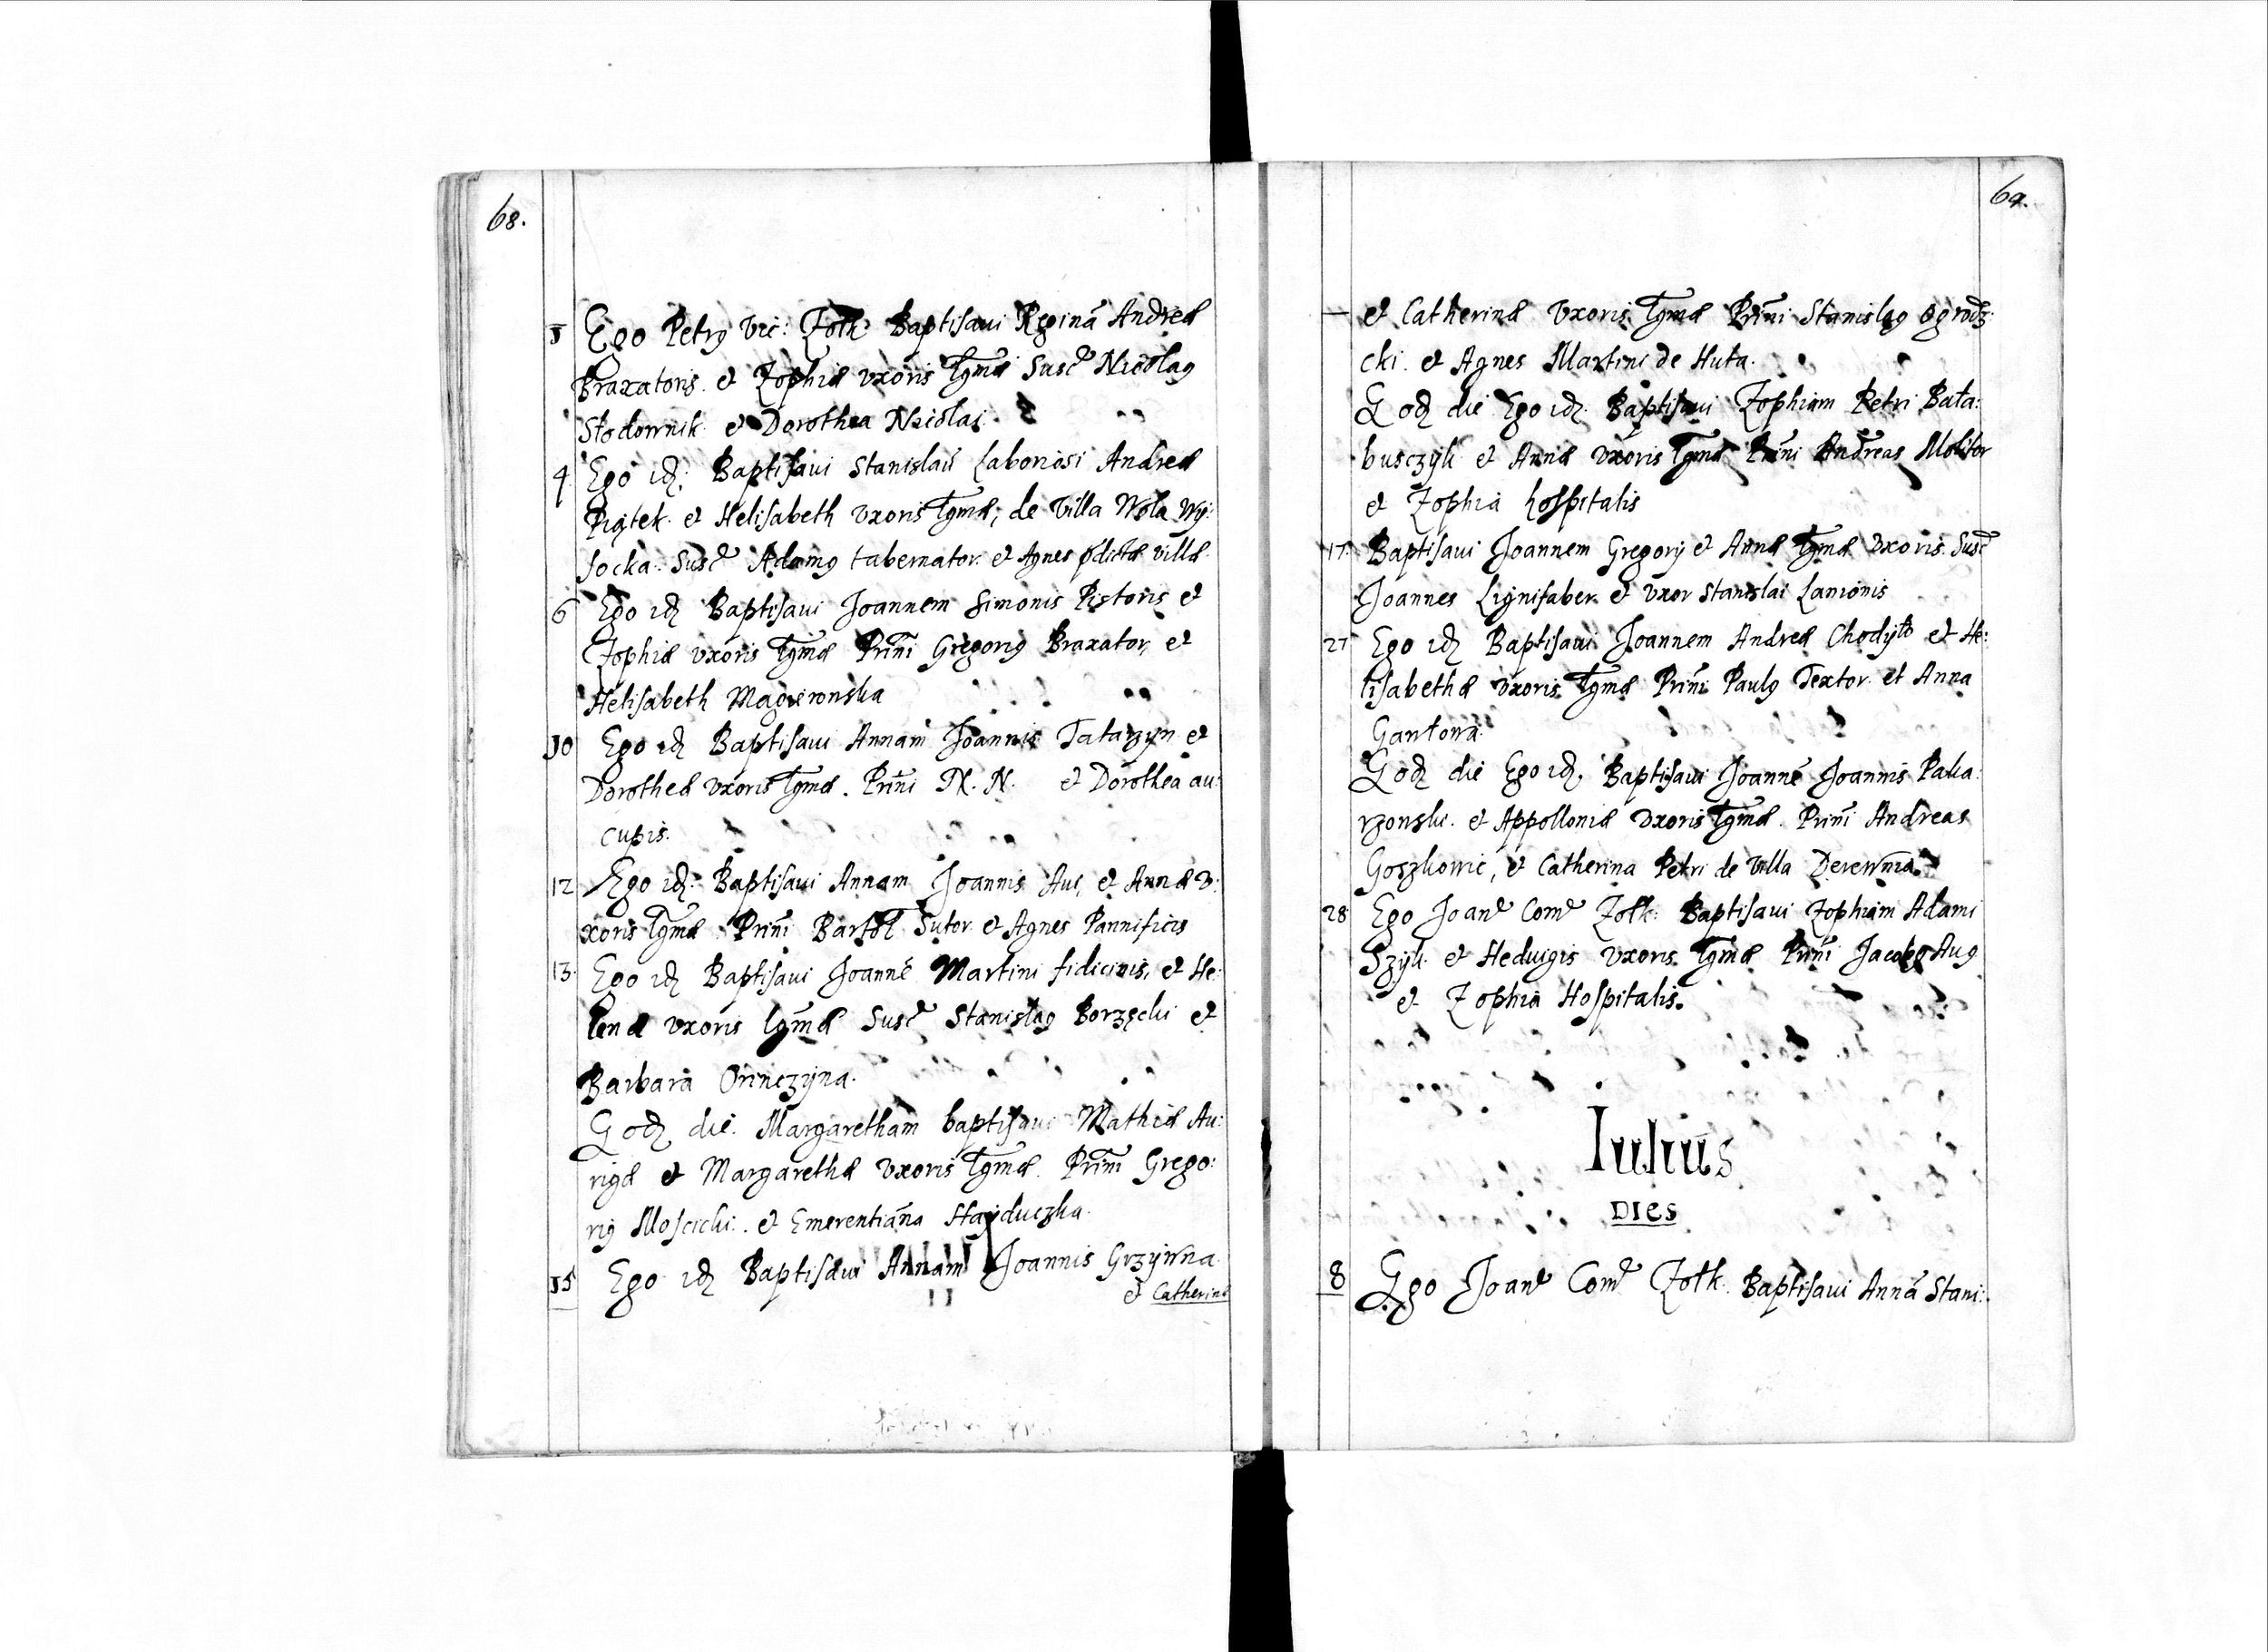 68.
3 Ego Petrꝯ Vic: Żołk: Baptisaui Reginā Andreæ
Braxatoris. et Zophiæ vxoris Lgmæ Susc. Nicolaꝯ
Słodownik et Dorothea Nicolai.
4 Ego idꝫ: Baptisaui Stanislaū Laboriosi Andreæ
Piątek. et Helisabeth vxoris Lgmæ, de Villa Wola Wy:
socka. Susc. Adamꝯ tabernator. et Agnes p̄dictæ villæ.
6 Ego idꝫ Baptisaui Joannem Simonis Pistoris et
Zophiæ vxoris Lgmæ Prīni Gregoriꝯ Braxator, et
Helisabeth Magierowska
10 Ego idꝫ Baptisaui Annam Joannis Tatarzyn et
Dorotheæ vxoris Lgmæ. Prīni N. N. et Dorothea au:
cupis.
12 Ego idꝫ: Baptisaui Annam Joannis Auc, et Annæ v:
xoris Lgmæ. Prīni Bartol Sutor et Agnes Pannificis
13. Ego idꝫ Baptisaui Joannē Martini fidicinis, et He:
lenæ vxoris lgmæ Susc. Stanisłaꝯ Borzęcki et
Barbara Orinczyna.
Eodꝫ die. Margaretham baptisaui Mathiæ Au:
rigæ et Margarethæ vxoris Lgmæ. Prīni Grego:
riꝯ Moscicki. et Emerentiāna Hayduczka.
15 Ego idꝫ Baptisaui Annam Joannis Grzywna
et Catherinæ
69.
— et Catherinæ Vxoris Lgmæ Prīni Stanislaꝯ Ogrodz:
cki. et Agnes Martini de Huta.
Eodꝫ die Ego idꝫ. Baptisaui Zophiam Petri Bała:
busczyk et Annæ vxoris Lgmæ Prīni Andreas Molitor
et Zophia hospitalis
17. Baptisaui Joannem Gregorij et Annæ Lgmæ vxoris. Susc
Joannes Lignifaber et vxor Stanislai Lanionis
27 Ego idꝫ Baptisaui Joannem Andreæ Chodyło et He:
lisabethæ vxoris Lgmæ Prīni Paulꝯ Textor et Anna
Gantowa.
Eodꝫ die Ego idꝫ. Baptisaui Joannē Joannis Paka:
rzonski. et Appolloniæ vxoris Lgmæ. Prīni Andreas
Goszkowic, et Catherina Petri de Villa Derewnia.
28 Ego Joan. Com. Żołk: Baptisaui Zophiam Adami
Szyk et Heduigis vxoris Lgmæ Prīni Jacobꝯ Aug
et Zophia Hospitalis.
Iulius
DIES
8 Ego Joan. Com. Żołk. Baptisaui Annā Stani: